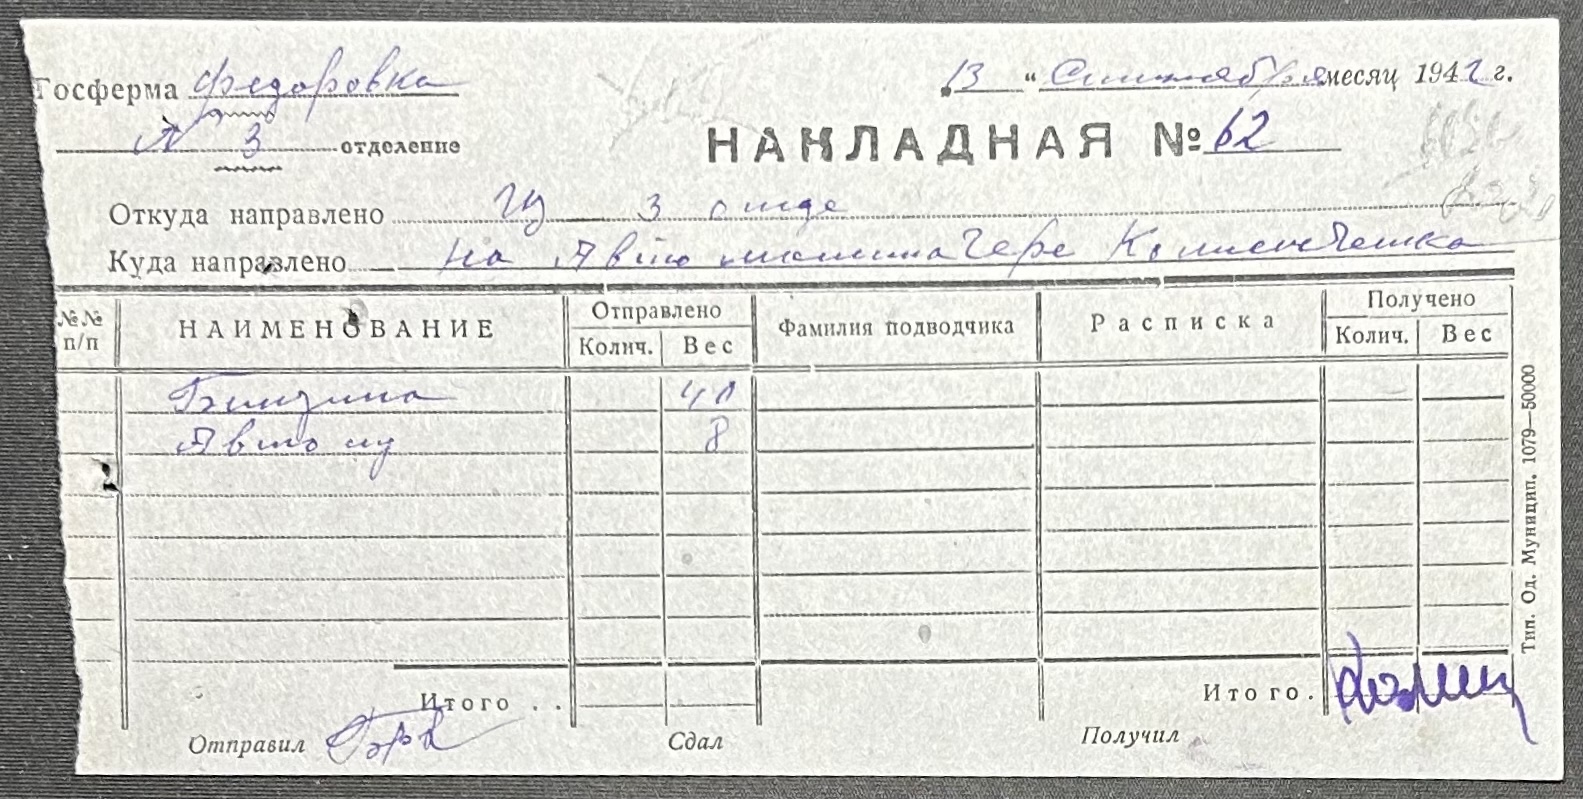 Госферма Федоровка
13 " Сентября месяц 1942 г.
№ 3 отделение
НАКЛАДНАЯ № 62
Откуда направлено 3 отде
Куда направлено на Авто машина чере
№№ п/п
НАИМЕНОВАНИЕ
Отправлено
Колич. Вес
Фамилия подводчика
Расписка
Получено
Колич. Вес
Бинзина
Авто 8
Итого . .
Итого .
Отправил
Сдал
Получил
Тип. Од. Муницип. 1079—50000